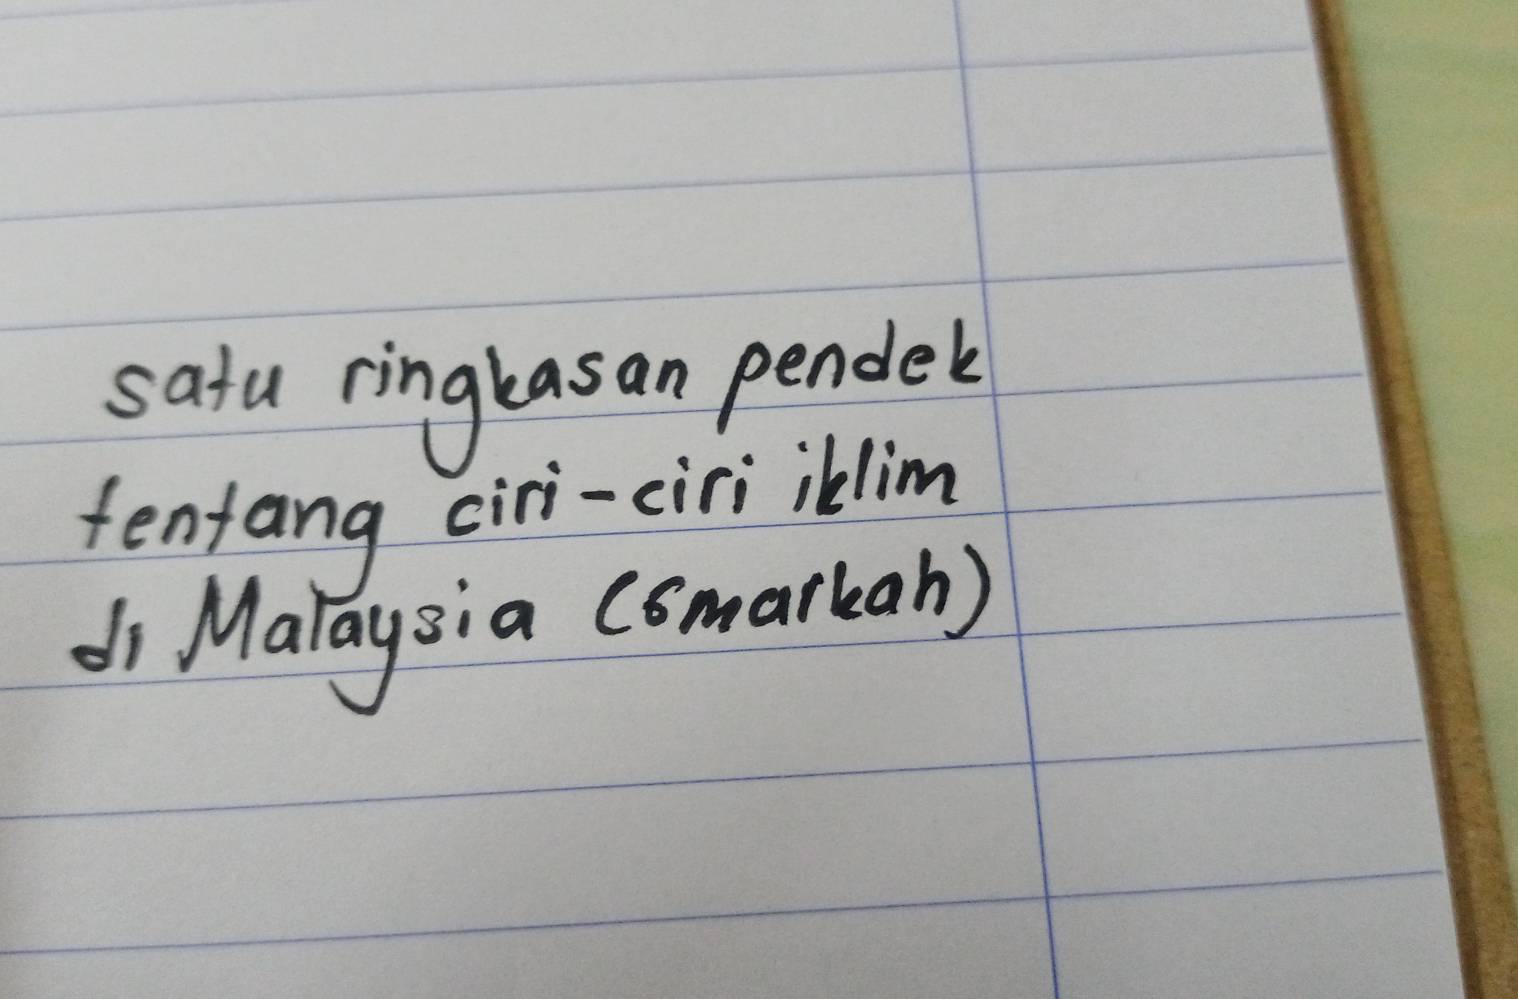 satu ringkasan pendek
tentang ciri-ciri iklim
di Malaysia (6markah)